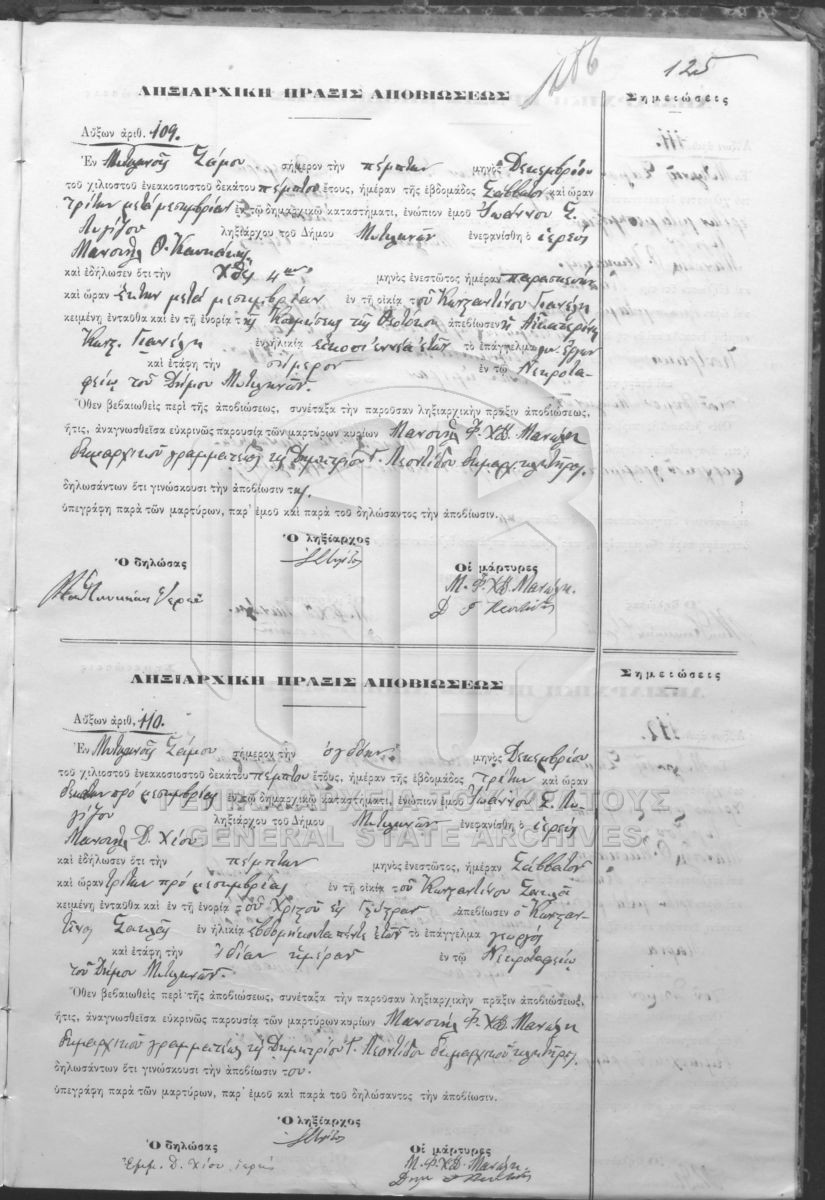 125
ΛΗΞΙΑΡΧΙΚΗ ΠΡΑΞΙΣ ΑΠΟΒΙΩΣΕΩΣ
Σημειώσεις
Αὔξων ἀριθ. 109.
Ἐν Μυτιληνοῖς Σάμου σήμερον τὴν πέμπτην μηνὸς Δεκεμβρίου
τοῦ χιλιοστοῦ ἐνεακοσιοστοῦ δεκάτου πέμπτου ἔτους, ἡμέραν τῆς ἑβδομάδος Σάββατον καὶ ὥραν
τρίτην μετὰ μεσημβρίαν ἐν τῷ δημαρχικῷ καταστήματι, ἐνώπιον ἐμοῦ Ἰωάννου Σ.
ληξιάρχου τοῦ Δήμου Μυτιληνῶν ἐνεφανίσθη ὁ ἱερεὺς
Μανουὴλ Θ.
καὶ ἐδήλωσεν ὅτι τὴν χθὲς 4ην μηνὸς ἐνεστῶτος ἡμέραν παρασκευὴν
καὶ ὥραν ἕκτην μετὰ μεσημβρίαν ἐν τῇ οἰκίᾳ τοῦ Κωνσταντίνου
κειμένῃ ἐνταῦθα καὶ ἐν τῇ ἐνορίᾳ τῆς Κοιμήσεως τῆς Θεοτόκου ἀπεβίωσεν ἡ Αἰκατερίνη
Κωνσ. ἐν ἡλικίᾳ εἴκοσι ἐννέα ἐτῶν τὸ ἐπάγγελμα
καὶ ἐτάφη τὴν σήμερον ἐν τῷ Νεκροτα-
φείῳ τοῦ Δήμου Μυτιληνῶν.
Ὅθεν βεβαιωθεὶς περὶ τῆς ἀποβιώσεως, συνέταξα τὴν παροῦσαν ληξιαρχικὴν πρᾶξιν ἀποβιώσεως,
ἥτις, ἀναγνωσθεῖσα εὐκρινῶς παρουσίᾳ τῶν μαρτύρων κυρίων Μανουὴλ Φ. Χδ. Μανώλη
δημαρχικοῦ γραμματέως καὶ Δημητρίου Γ. Λεοντίδου δημαρχ. κλητῆρος.
δηλωσάντων ὅτι γινώσκουσι τὴν ἀποβίωσιν της.
ὑπεγράφη παρὰ τῶν μαρτύρων, παρ' ἐμοῦ καὶ παρὰ τοῦ δηλώσαντος τὴν ἀποβίωσιν.
Ὁ ληξίαρχος
Ὁ δηλώσας
Οἱ μάρτυρες
Μ. Φ. Χδ. Μανώλη.
ΛΗΞΙΑΡΧΙΚΗ ΠΡΑΞΙΣ ΑΠΟΒΙΩΣΕΩΣ
Σημειώσεις
Αὔξων ἀριθ. 110.
Ἐν Μυτιληνοῖς Σάμου σήμερον τὴν ὀγδόην μηνὸς Δεκεμβρίου
τοῦ χιλιοστοῦ ἐνεακοσιοστοῦ δεκάτου πέμπτου ἔτους, ἡμέραν τῆς ἑβδομάδος τρίτην καὶ ὥραν
δεκάτην πρὸ μεσημβρίας ἐν τῷ δημαρχικῷ καταστήματι, ἐνώπιον ἐμοῦ Ἰωάννου Σ.
ληξιάρχου τοῦ Δήμου Μυτιληνῶν ἐνεφανίσθη ὁ ἱερεὺς
Μανουὴλ Δ. Χίου
καὶ ἐδήλωσεν ὅτι τὴν πέμπτην μηνὸς ἐνεστῶτος, ἡμέραν Σάββατον
καὶ ὥραν τρίτην πρὸ μεσημβρίας ἐν τῇ οἰκίᾳ τοῦ Κωνσταντίνου
κειμένῃ ἐνταῦθα καὶ ἐν τῇ ἐνορίᾳ τοῦ Χριστοῦ ἀπεβίωσεν ὁ Κωνσταν-
τῖνος ἐν ἡλικίᾳ ἑβδομήκοντα πέντε ἐτῶν τὸ ἐπάγγελμα γεωργὸς
καὶ ἐτάφη τὴν ἰδίαν ἡμέραν ἐν τῷ Νεκροταφείῳ
τοῦ Δήμου Μυτιληνῶν.
Ὅθεν βεβαιωθεὶς περὶ τῆς ἀποβιώσεως, συνέταξα τὴν παροῦσαν ληξιαρχικὴν πρᾶξιν ἀποβιώσεως,
ἥτις, ἀναγνωσθεῖσα εὐκρινῶς παρουσίᾳ τῶν μαρτύρων κυρίων Μανουὴλ Φ. Χδ. Μανώλη
δημαρχικοῦ γραμματέως καὶ Δημητρίου Γ. Λεοντίδου δημαρχικοῦ κλητῆρος.
δηλωσάντων ὅτι γινώσκουσι τὴν ἀποβίωσιν του.
ὑπεγράφη παρὰ τῶν μαρτύρων, παρ' ἐμοῦ καὶ παρὰ τοῦ δηλώσαντος τὴν ἀποβίωσιν.
Ὁ ληξίαρχος
Ὁ δηλώσας
Οἱ μάρτυρες
Ἐμμ. Δ. Χίου ἱερεὺς
Μ. Φ. Χδ. Μανώλη.
ΓΕΝΙΚΑ ΑΡΧΕΙΑ ΤΟΥ ΚΡΑΤΟΥΣ
GENERAL STATE ARCHIVES